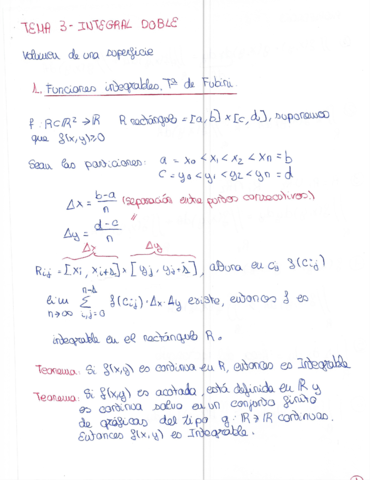 TEMA 3 - INTEGRAL DOBLE
Volumen de una superficie
1. Funciones integrables. Tª de Fubini
f: R⊂ℝ² → ℝ R rectángulo = [a,b] x [c,d], suponemos
que f(x,y)≥0
Sean las particiones: a = x₀ < x₁ < x₂ < xn = b
C = y₀ < y₁ < y₂ < yn = d
Δx = b-a/n (separación entre puntos consecutivos)
Δy = d-c/n
Δx Δy
Rij = [xi, xi+1] x [yj, yj+1], altura en cij f(cij)
lim n→∞ n-1 Σ i,j=0 f(cij)·Δx·Δy existe, entonces f es
integrable en el rectángulo R.
Teorema: Si f(x,y) es continua en R, entonces es Integrable
Teorema: Si f(x,y) es acotada, está definida en R y
es continua salvo en un conjunto finito
de gráficas del tipo g: ℝ→ℝ continuas.
Entonces f(x,y) es Integrable.